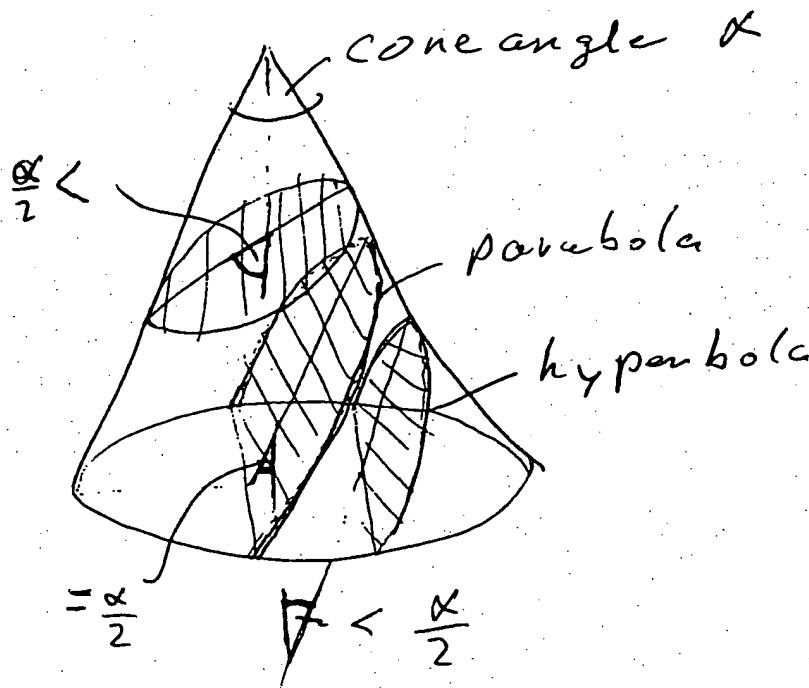 cone angle α
α/2 <
parabola
hyperbola
= α/2
< α/2